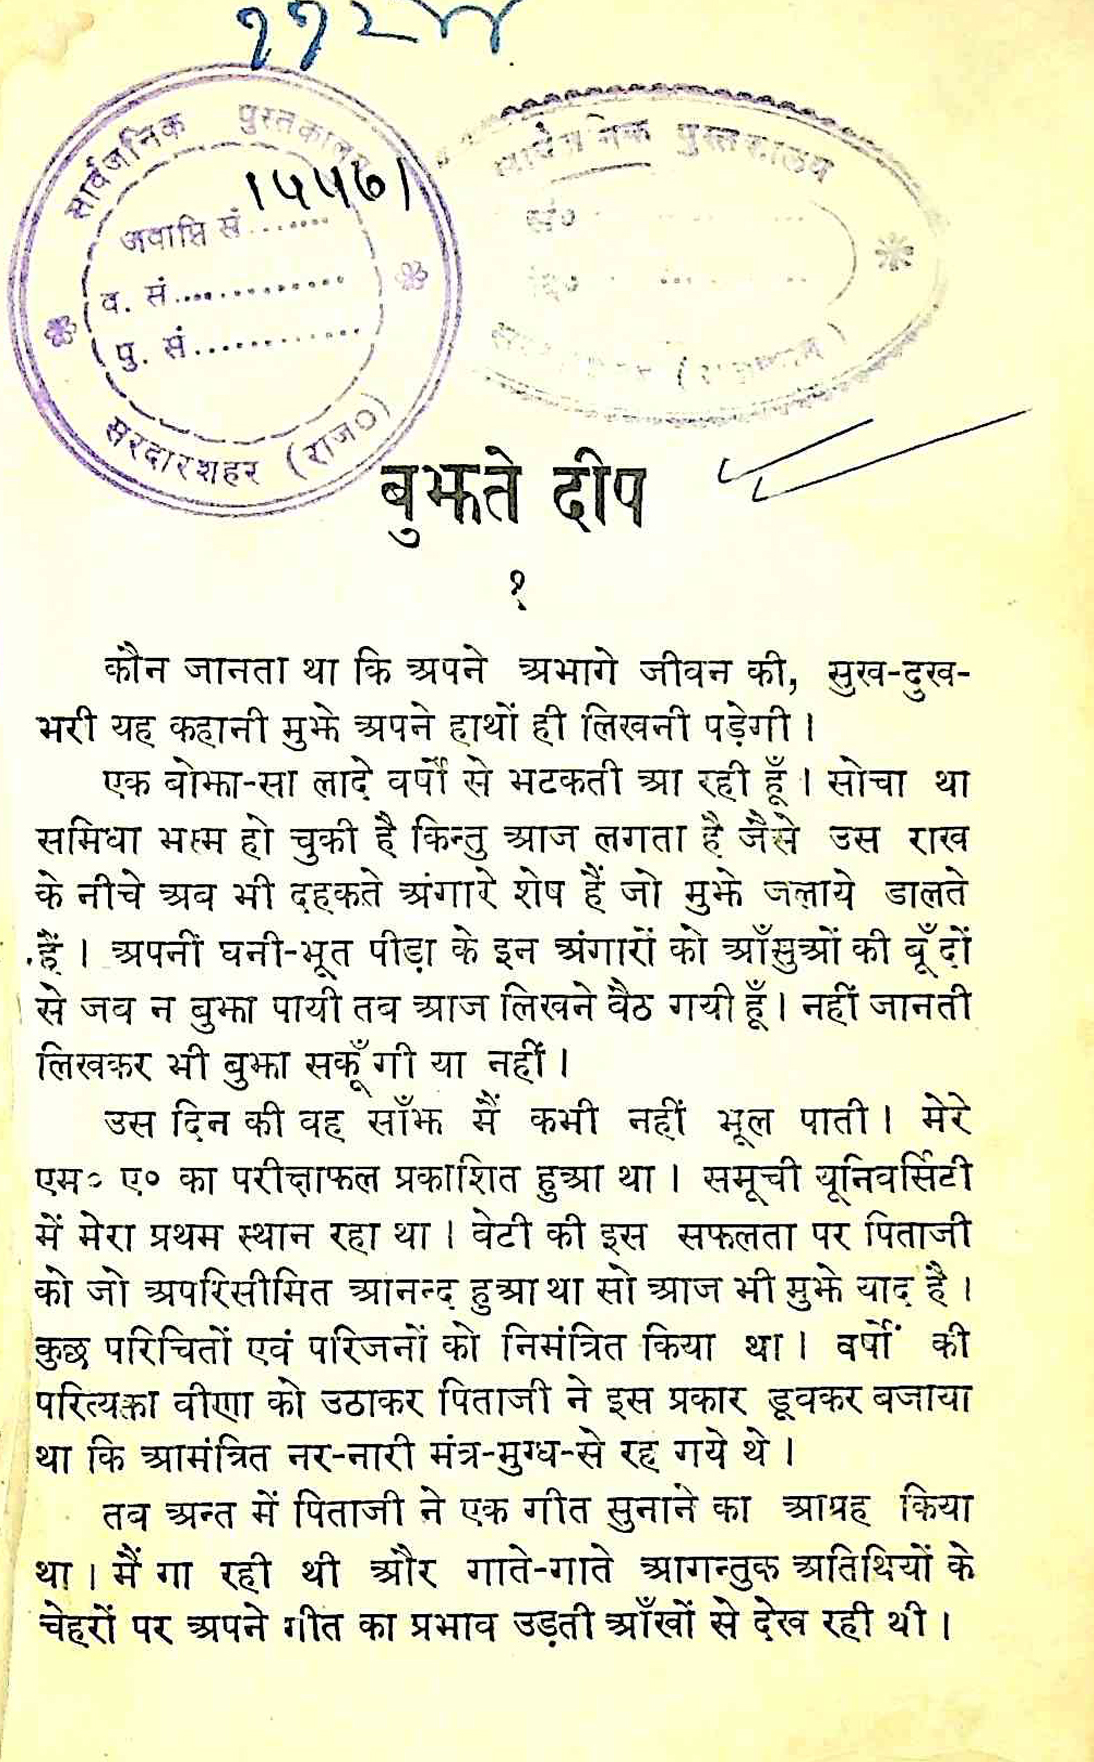 सार्वजनिक पुस्तकालय
१५५७
अवाप्ति सं.......
व. सं.............
पु. सं............
सरदारशहर (राज०)
पुस्तकालय
सं०
बुझते दीप
१
कौन जानता था कि अपने अभागे जीवन की, सुख-दुख-
भरी यह कहानी मुझे अपने हाथों ही लिखनी पड़ेगी।
एक बोझा-सा लादे वर्षों से भटकती आ रही हूँ। सोचा था
समिधा भस्म हो चुकी है किन्तु आज लगता है जैसे उस राख
के नीचे अब भी दहकते अंगारे शेष हैं जो मुझे जलाये डालते
हैं। अपनी घनी-भूत पीड़ा के इन अंगारों को आँसुओं की बूँदों
से जब न बुझा पायी तब आज लिखने बैठ गयी हूँ। नहीं जानती
लिखकर भी बुझा सकूँगी या नहीं।
उस दिन की वह साँझ मैं कभी नहीं भूल पाती। मेरे
एम० ए० का परीक्षाफल प्रकाशित हुआ था। समूची यूनिवर्सिटी
में मेरा प्रथम स्थान रहा था। बेटी की इस सफलता पर पिताजी
को जो अपरिसीमित आनन्द हुआ था सो आज भी मुझे याद है।
कुछ परिचितों एवं परिजनों को निमंत्रित किया था। वर्षों की
परित्यक्ता वीणा को उठाकर पिताजी ने इस प्रकार डूबकर बजाया
था कि आमंत्रित नर-नारी मंत्र-मुग्ध-से रह गये थे।
तब अन्त में पिताजी ने एक गीत सुनाने का आग्रह किया
था। मैं गा रही थी और गाते-गाते आगन्तुक अतिथियों के
चेहरों पर अपने गीत का प्रभाव उड़ती आँखों से देख रही थी।